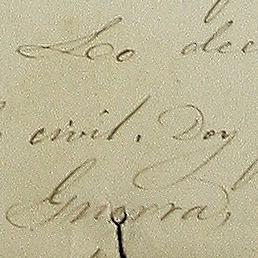 Lo dec
civil. Doy
Guerra,